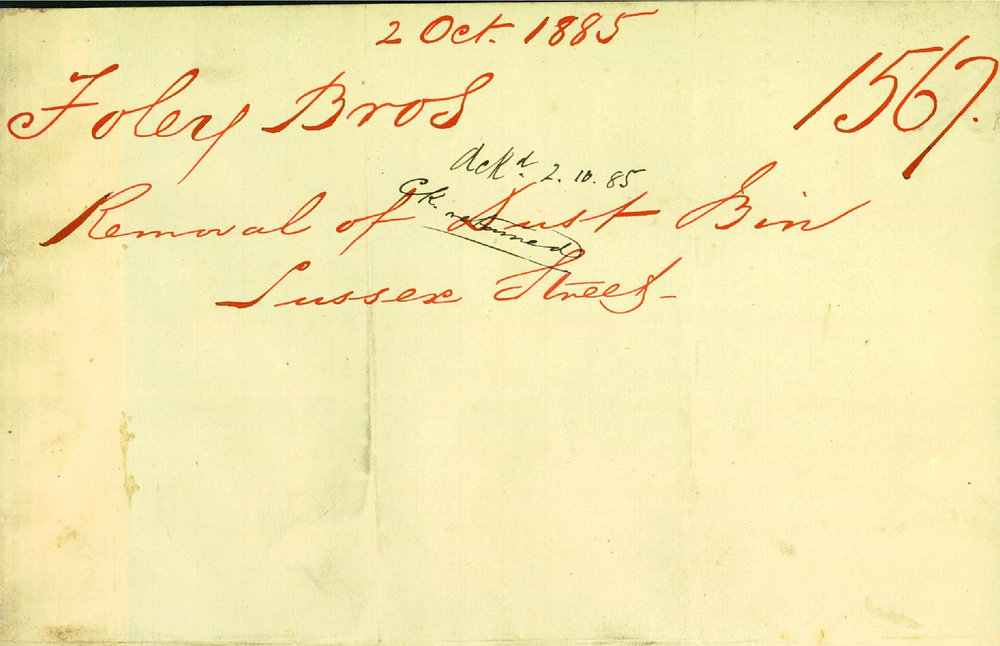 2 Oct. 1885
Foley Bros 1567.
Ackd. 2.10.85
Ck. returned
Removal of Dust Bin
Sussex Street